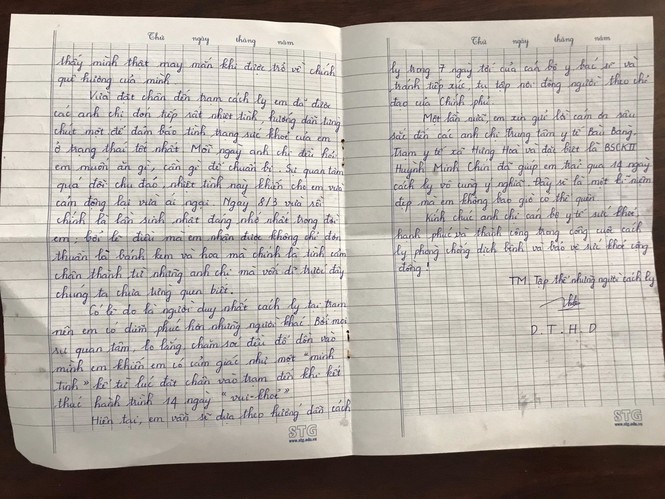 Thứ ngày tháng năm
thấy mình thật may mắn khi được trở về chính
quê hương của mình
Vừa đặt chân đến trạm cách ly em đã được
các anh chị đón tiếp rất nhiệt tình, hướng dẫn từng
chút một để đảm bảo tình trạng sức khoẻ của em
ở trạng thái tốt nhất Mỗi ngày anh chị đều hỏi
em muốn ăn gì, cần gì để chuẩn bị. Sự quan tâm
quá đỗi chu đáo, nhiệt tình này khiến cho em vừa
cảm động lại vừa ái ngại. Ngày 8/3 vừa rồi
chính là lần sinh nhật đáng nhớ nhất trong đời
em, bởi lẽ điều mà em nhận được không chỉ đơn
thuần là bánh kem và hoa mà chính là tình cảm
chân thành từ những anh chị mà vốn dĩ trước đây
chúng ta chưa từng quen biết.
Có lẽ do là người duy nhất cách ly tại trạm
nên em có diễm phúc hơn những người khác. Bởi mọi
sự quan tâm, lo lắng, chăm sóc đều đổ dồn vào
mình em khiến em có cảm giác như một "minh
tinh" kể từ lúc đặt chân vào trạm đến khi kết
thúc hành trình 14 ngày "vui-khoẻ"
Hiện tại, em vẫn sẽ dựa theo hướng dẫn cách
STG
www.stg.edu.vn
Thứ ngày tháng năm
ly trong 7 ngày tới của cán bộ y bác sĩ và
tránh tiếp xúc, tụ tập nơi đông người theo chỉ
đạo của Chính phủ.
Một lần nữa, em xin gửi lời cảm ơn sâu
sắc đến các anh chị Trung tâm y tế Bàu Bàng-
Trạm y tế xã Hưng Hoà và đặc biệt là BSCKII
Huỳnh Minh Chín đã giúp em trải qua 14 ngày
cách ly vô cùng ý nghĩa. Đây sẽ là một kỉ niệm
đẹp mà em không bao giờ có thể quên.
Kính chúc anh chị cán bộ y tế sức khoẻ,
hạnh phúc và thành công trong công cuộc cách
ly phòng chống dịch bệnh và bảo vệ sức khoẻ cộng
đồng!
TM Tập thể những người cách ly
D.T.H.D
STG
www.stg.edu.vn